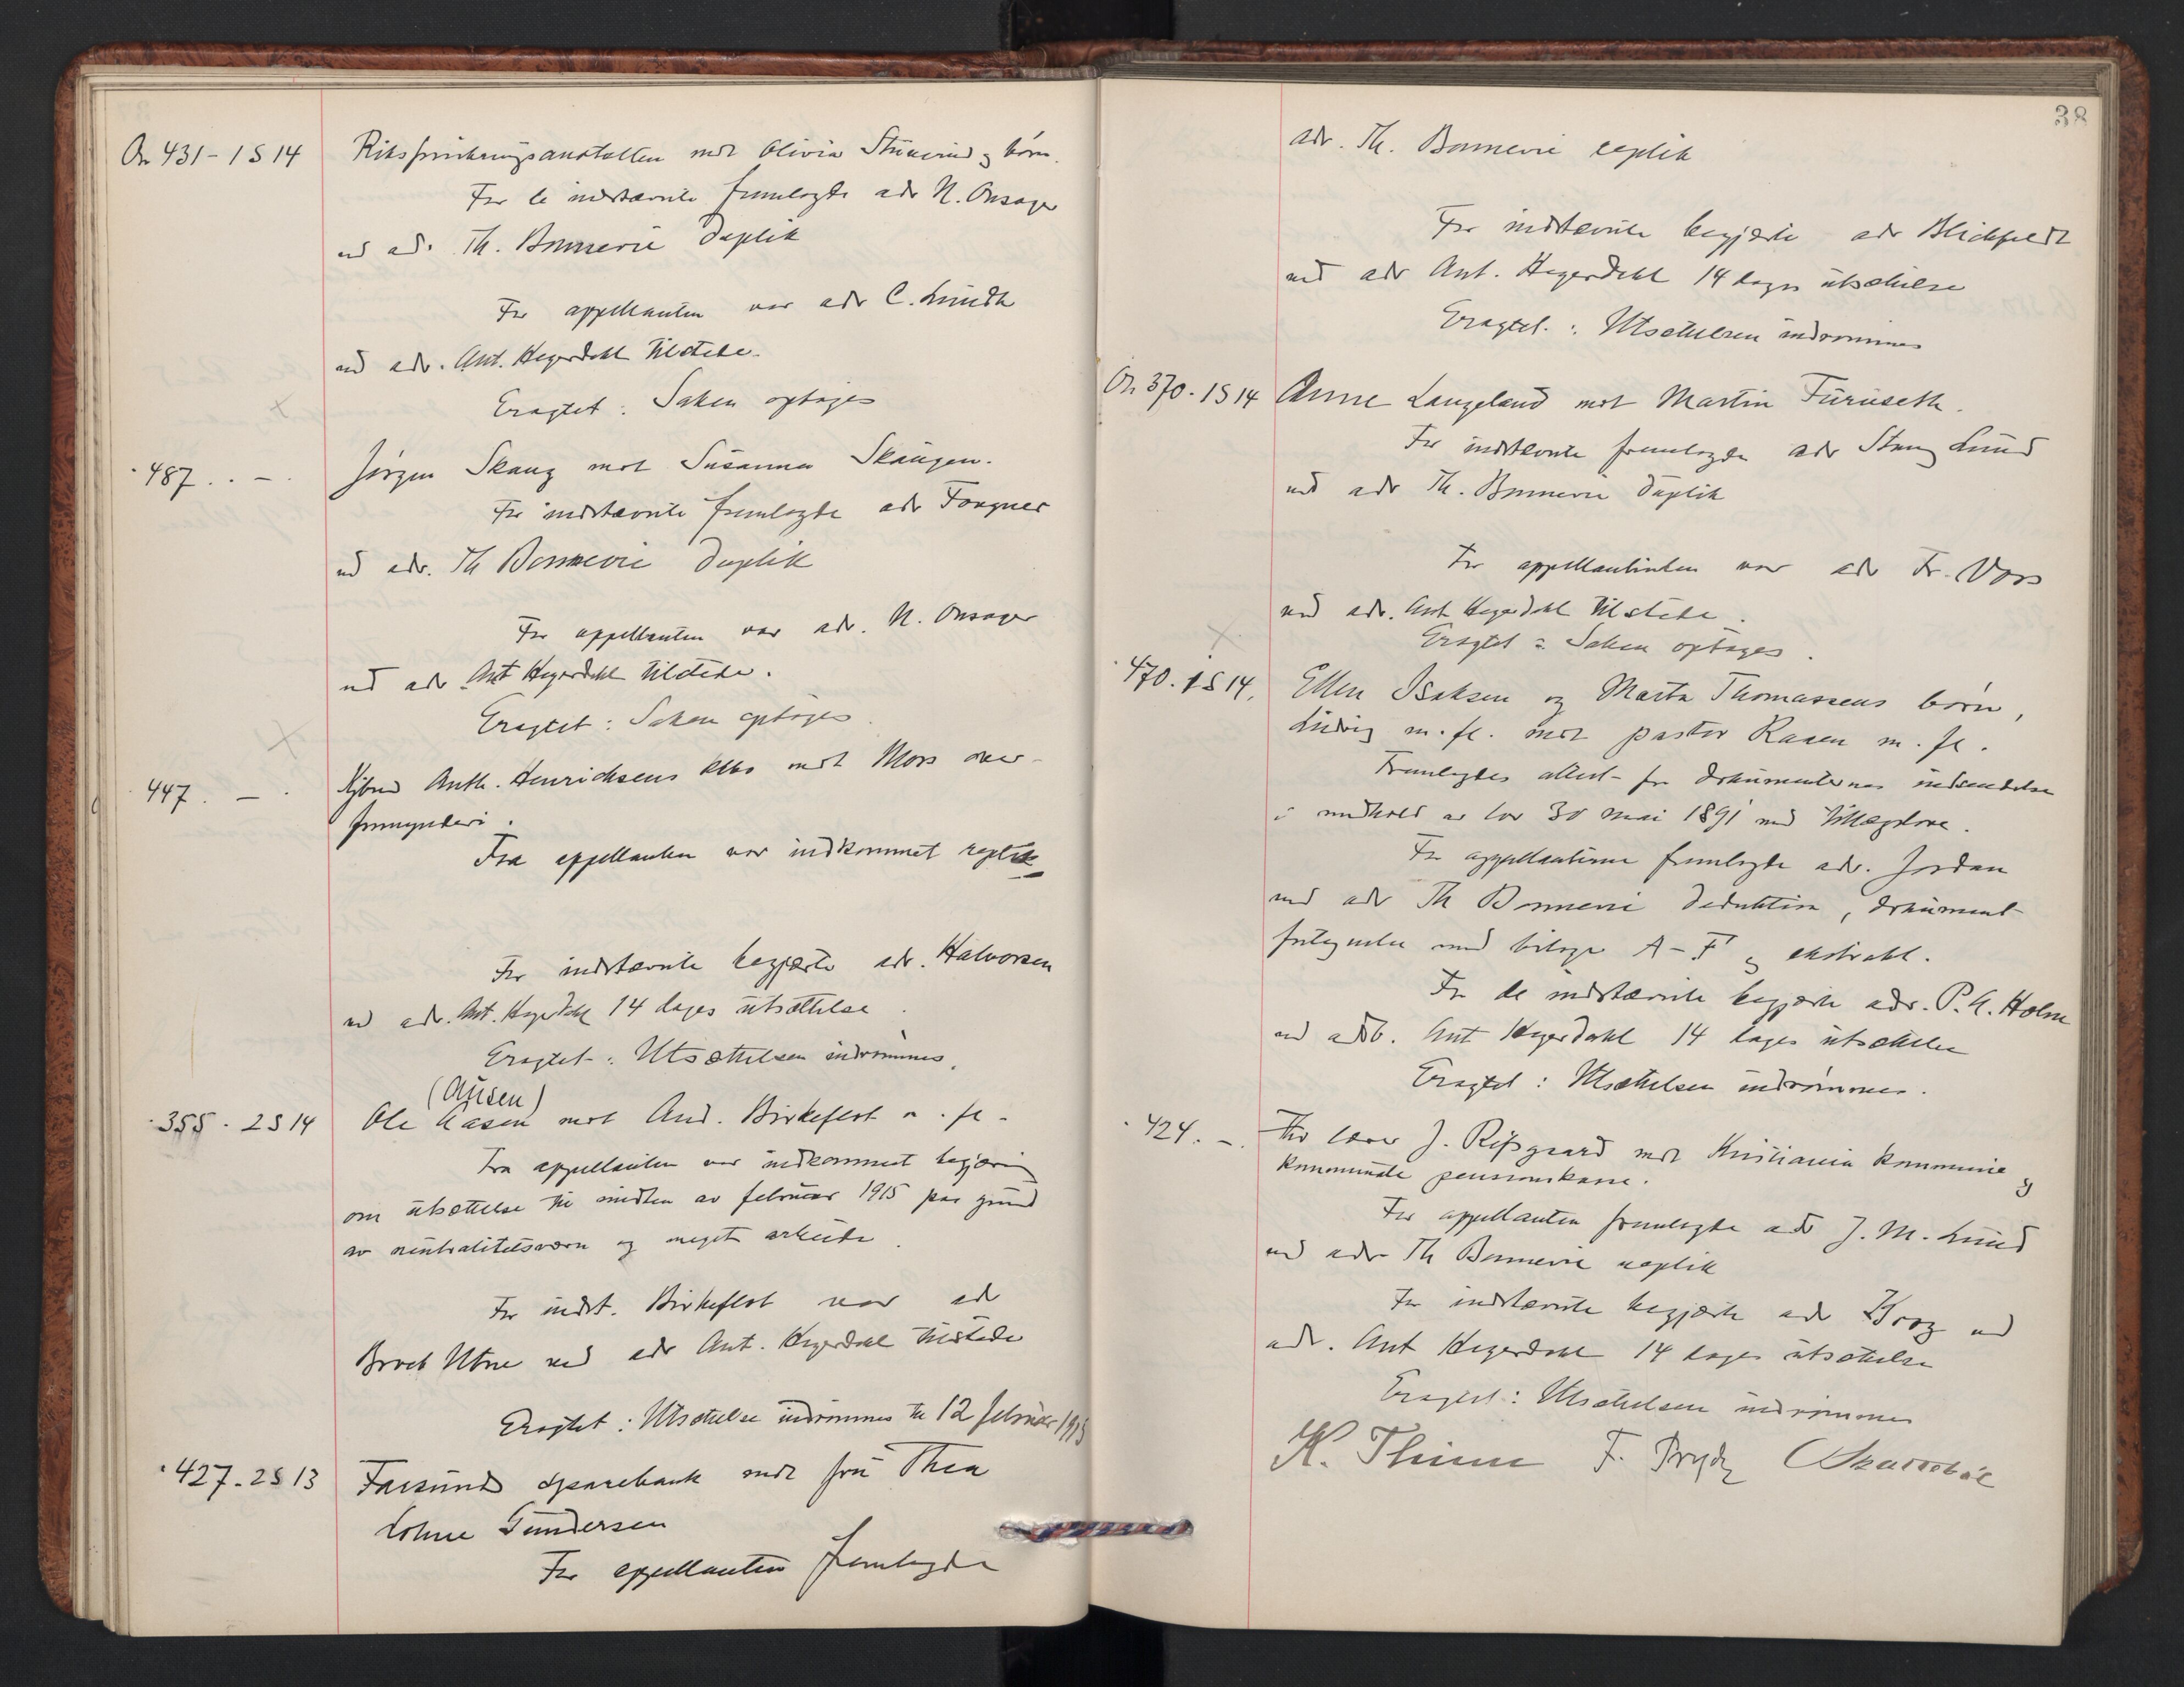 On 431 - 1 S 14 Riksforsikringsanstalten mot Olivia Stuverud og børn.
For de indstævnte fremlagde adv N. Onsager
ved adv. Th. Bonnevie duplik
For appellanten var adv C. Lundh
ved adv. Ant. Hegerdahl tilstede.
Eragtet: Saken optages
487 . . - . Jørgen Skaug mot Susanna Skaugen.
For indstævnte fremlagde adv Fougner
ved adv. Th Bonnevie duplik
For appellanten var adv. N. Onsager
ved adv Ant Hegerdahl tilstede.
Eragtet: Saken optages.
447. - . Kjøbmd Anth. Henrichsens mot Moss over-
formynderi.
Fra appellanten var indkommet replik
For indstævnte begjærte adv. Halvorsen
ved adv. Ant. Hegerdahl 14 dages utsættelse.
Eragtet: Utsættelsen indrømmes.
(Aasen)
355. 2 S 14 Ole Aasen mot And. Birkeflot m. fl.
Fra appellanten var indkommet begjæring
om utsættelse til midten av februar 1915 paa grund
av neutralitetsvern og meget arbeide.
For indst. Birkeflot var adv
Broch Utne ved adv Ant. Hegerdahl tilstede
Eragtet: Utsættelse indrømmes til 12 februar 1915
427. 2 S 13 Farsunds sparebank mot fru Thea
Lohne Gundersen
For appellanten fremlagde
38
adv. Th. Bonnevie replik
For indstævnte begjærte adv Blichfeldt
ved adv Ant. Hegerdahl 14 dages utsættelse
Eragtet: Utsættelsen indrømmes
On 370. 1 S 14 Anne Langeland mot Martin Furuseth.
For indstævnte fremlagde adv Stang Lund
ved adv Th. Bonnevie duplik
For appellantinden var adv Fr. Voss
ved adv. Ant Hegerdahl tilstede.
Eragtet: Saken optages.
470. 1 S 14. Ellen Isaksen og Marta Thomassens børn,
Ludvig m. fl. mot pastor Raaen m. fl.
Fremlagdes attest for dokumenternes indsendelse
i medhold av lov 30 mai 1891 med tillægslove.
For appellanterne fremlagde adv. Jordan
ved adv Th Bonnevie deduktion, dokument-
fortegnelse med bilage A - F og ekstrakt.
For de indstævnte begjærte adv. P. A. Holm
ved adv. Ant Hegerdahl 14 dages utsættelse
Eragtet: Utsættelsen indrømmes.
424. - . Fhv lærer J. Risgaard mot Kristiania kommune og
kommunale pensionskasse.
For appellanten fremlagde adv J. M. Lund
ved adv Th Bonnevie replik
For indstævnte begjærte adv Krog ved
adv. Ant Hegerdahl 14 dages utsættelse
Eragtet: Utsættelsen indrømmes
K. Thinn F. Prydz